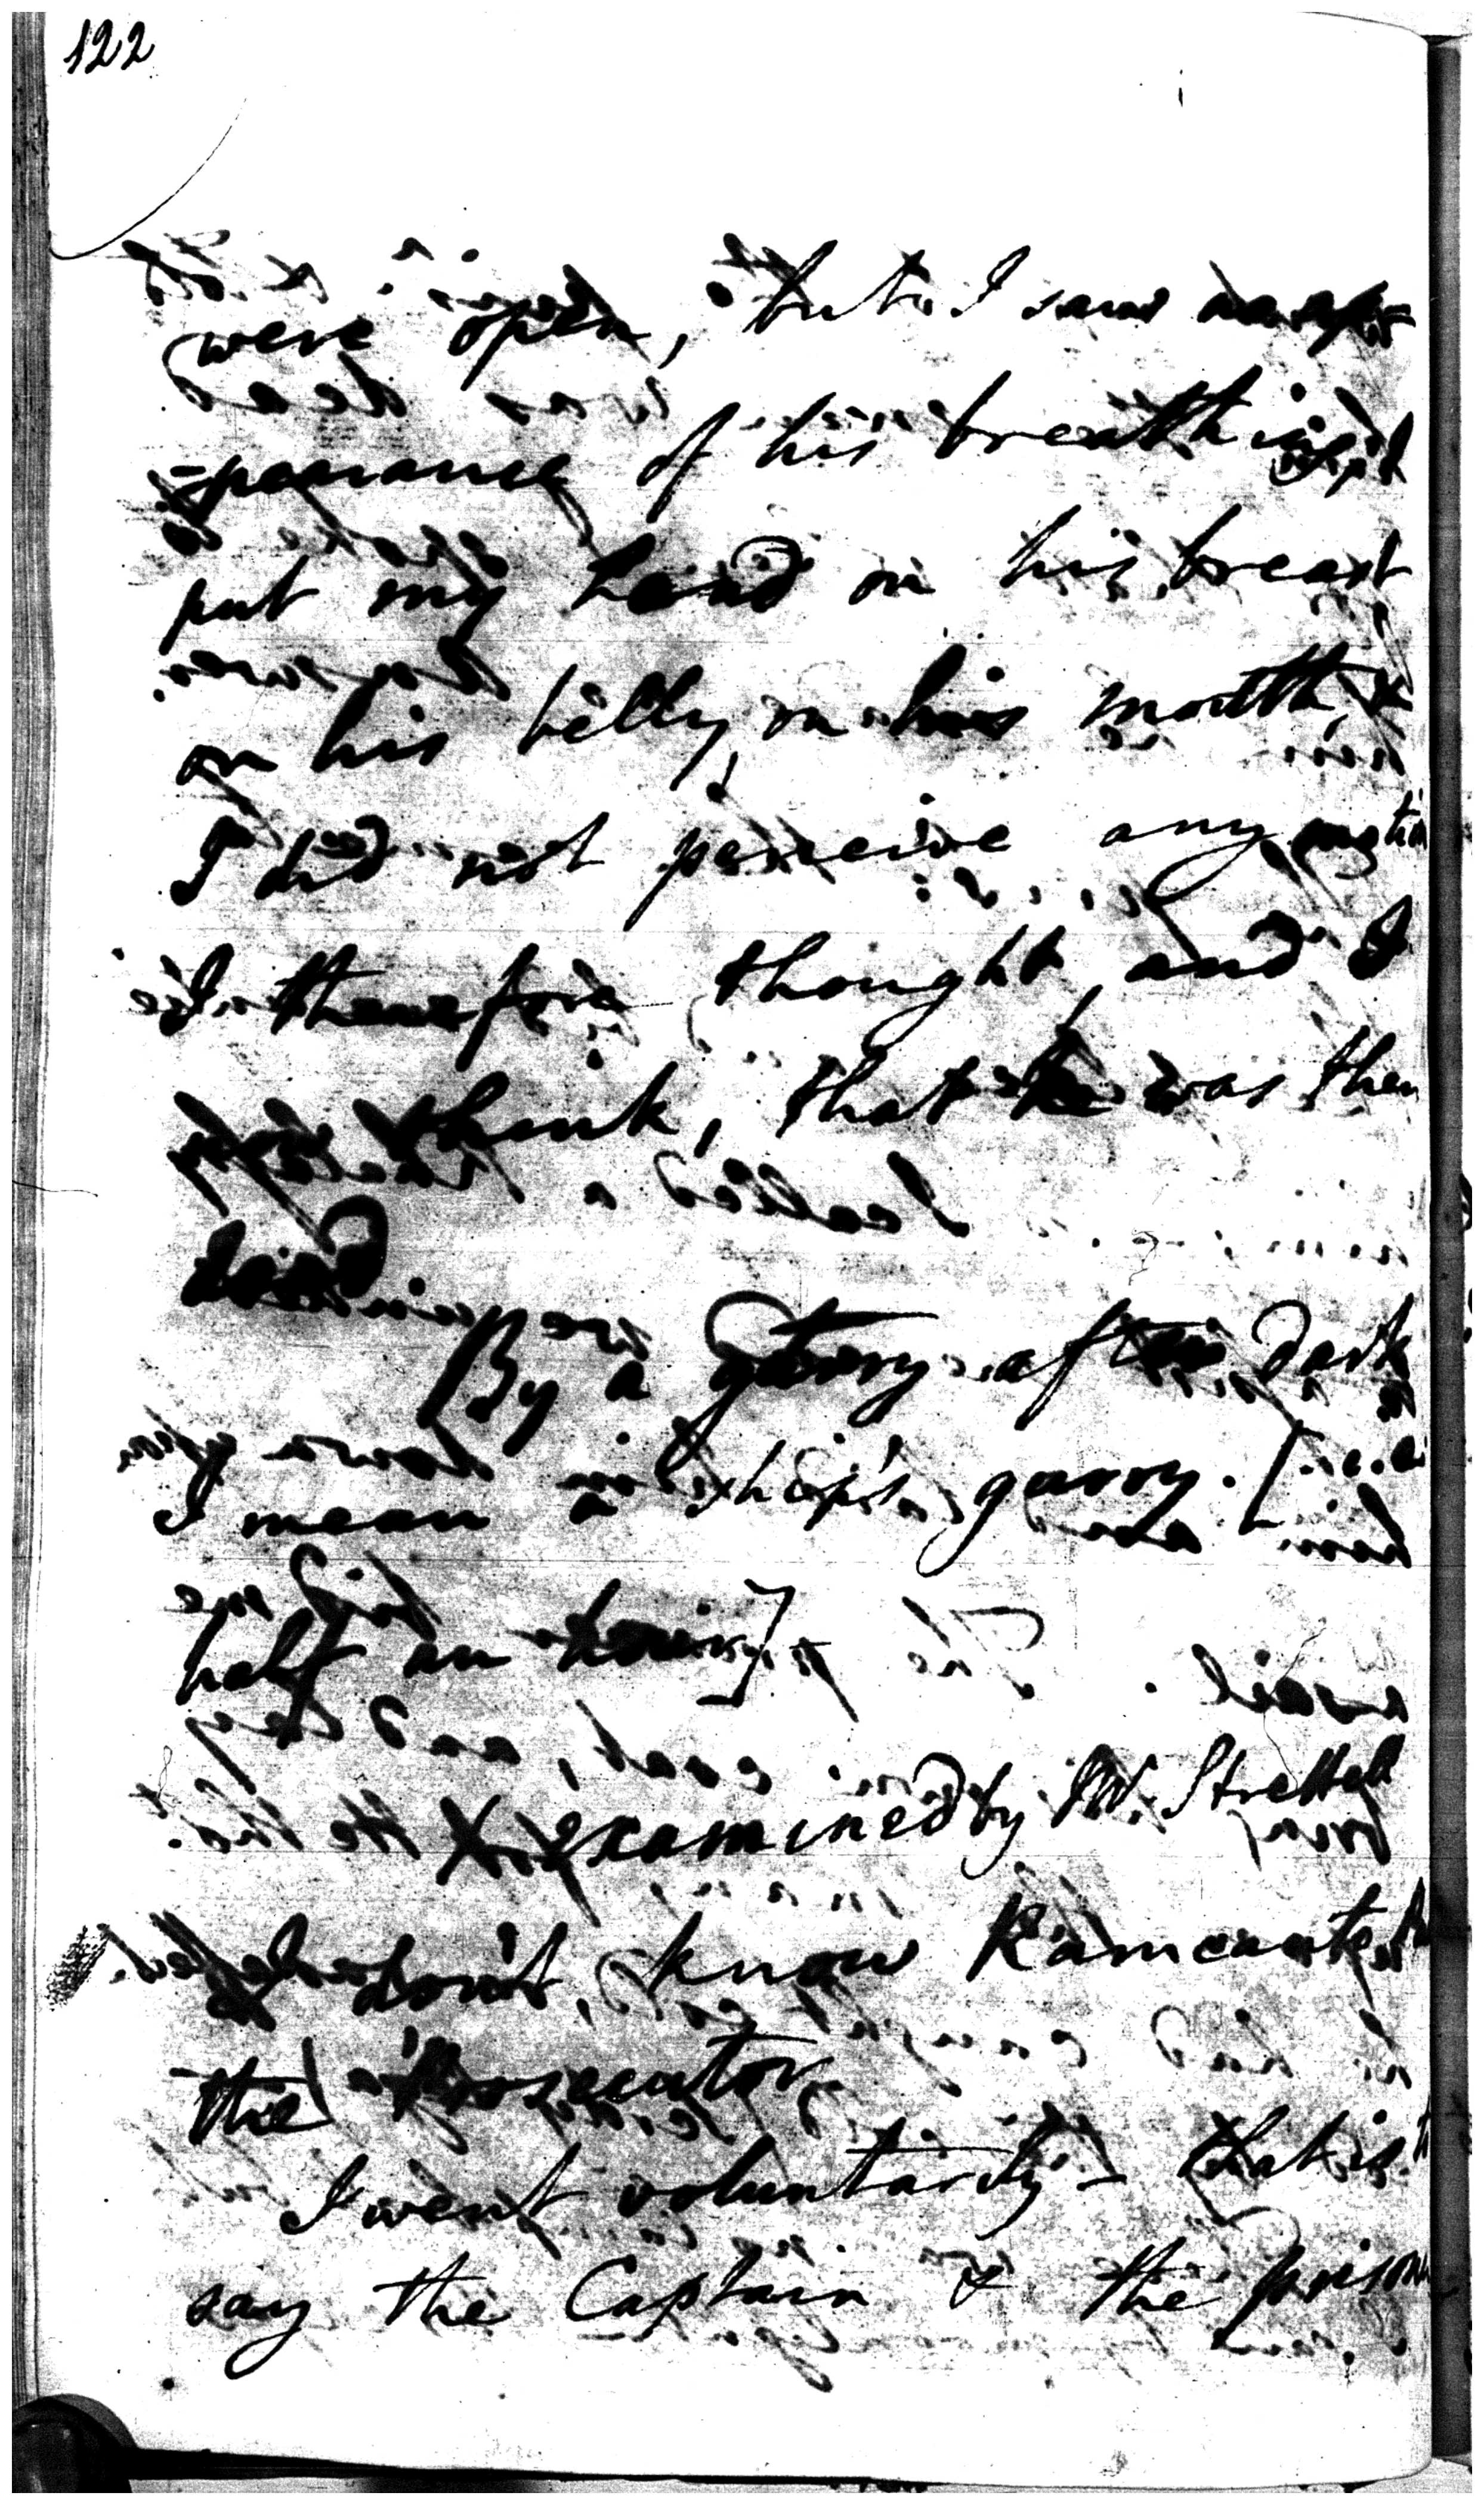 122
were open, but I saw no ap
-pearance of his breathing, I
put my hand on his breast
on his belly, on his mouth, &
I did not perceive any motion
I therefore thought, and I
now think, that he was then
dead.
By a gurry after dark
I mean a ship's gurry. [i.e.
half an hour]
Xx examined by Mr. Strettell
I don't know Ramcaunt
the Prosecutor
I went voluntarily - that is to
say the Captain & the prisoner